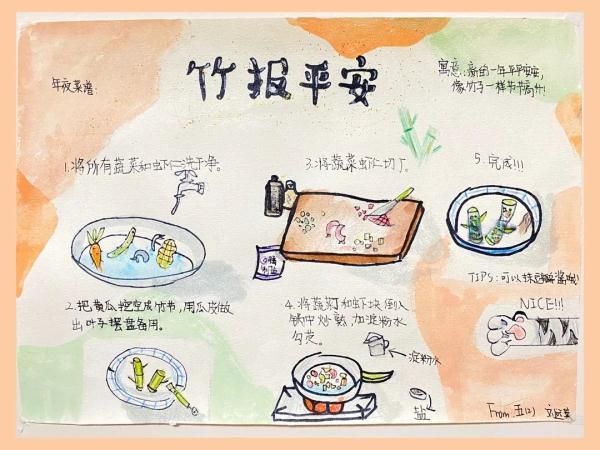 年夜菜谱:
竹报平安
寓意:新的一年平平安安,
像竹子一样节节高升!
1.将所有蔬菜和虾仁洗干净。
2.把黄瓜挖空成竹节,用瓜皮做
出叶子摆盘备用。
3.将蔬菜虾仁切丁。
4.将蔬菜丁和虾块倒入
锅中炒熟,加淀粉水
勾芡。
淀粉水
盐
5.完成!!!
TIPS:可以抹
NICE!!!
From.五(2)